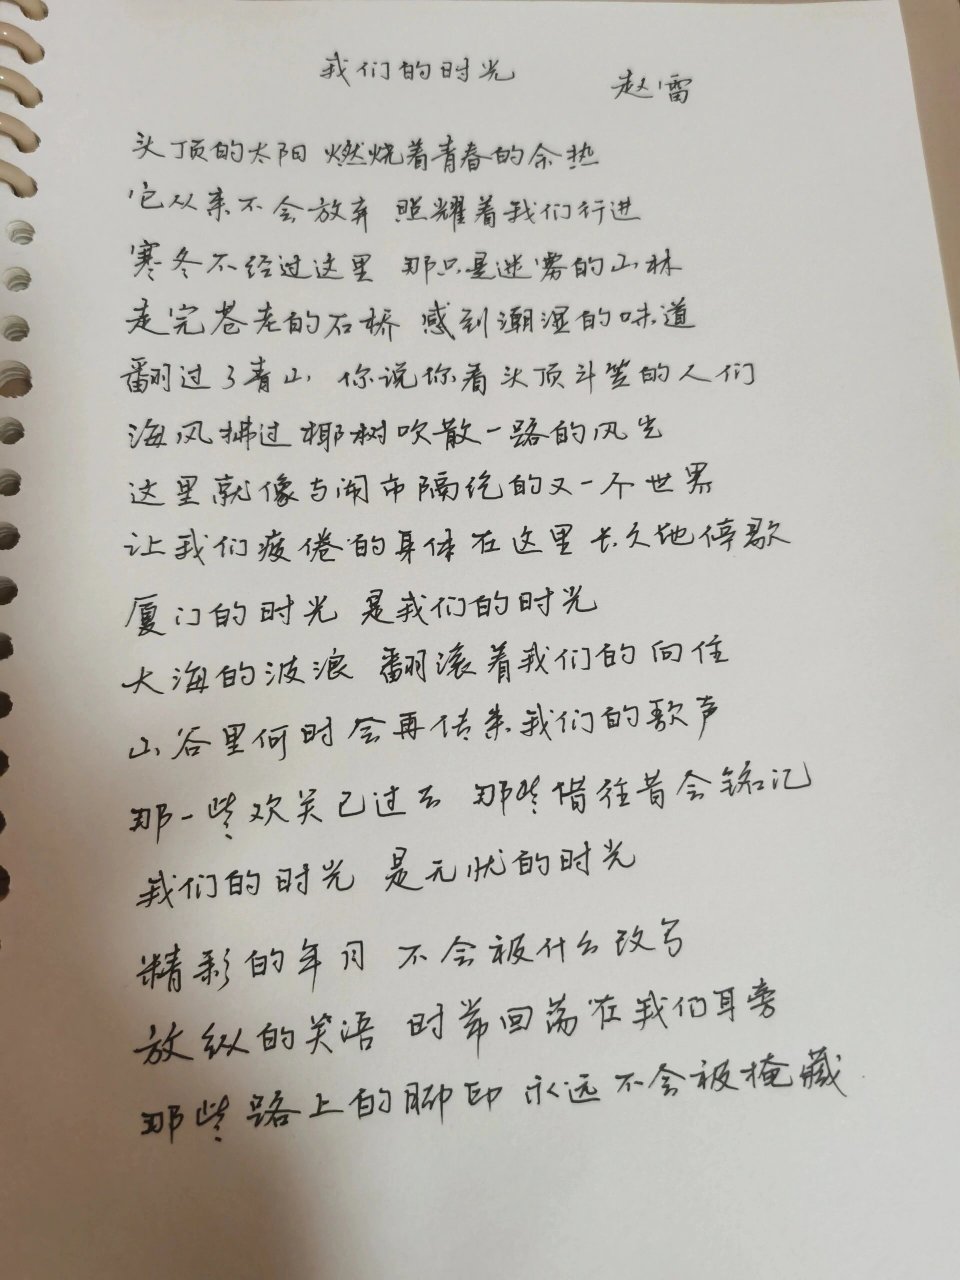 我们的时光
赵雷
头顶的太阳 燃烧着青春的余热
它从来不会放弃 照耀着我们行进
寒冬不经过这里 那只是迷雾的山林
走完苍老的石桥 感到潮湿的味道
翻过了青山 你说你看头顶斗笠的人们
海风拂过椰树吹散一路的风尘
这里就像与闹市隔绝的又一个世界
让我们疲倦的身体在这里长久地停歇
厦门的时光 是我们的时光
大海的波浪 翻滚着我们的向往
山谷里何时会再传来我们的歌声
那一些欢笑已过去 那些惜往昔会铭记
我们的时光 是无忧的时光
精彩的年月 不会被什么改写
放纵的笑语 时常回荡在我们耳旁
那些路上的脚印 永远不会被掩藏